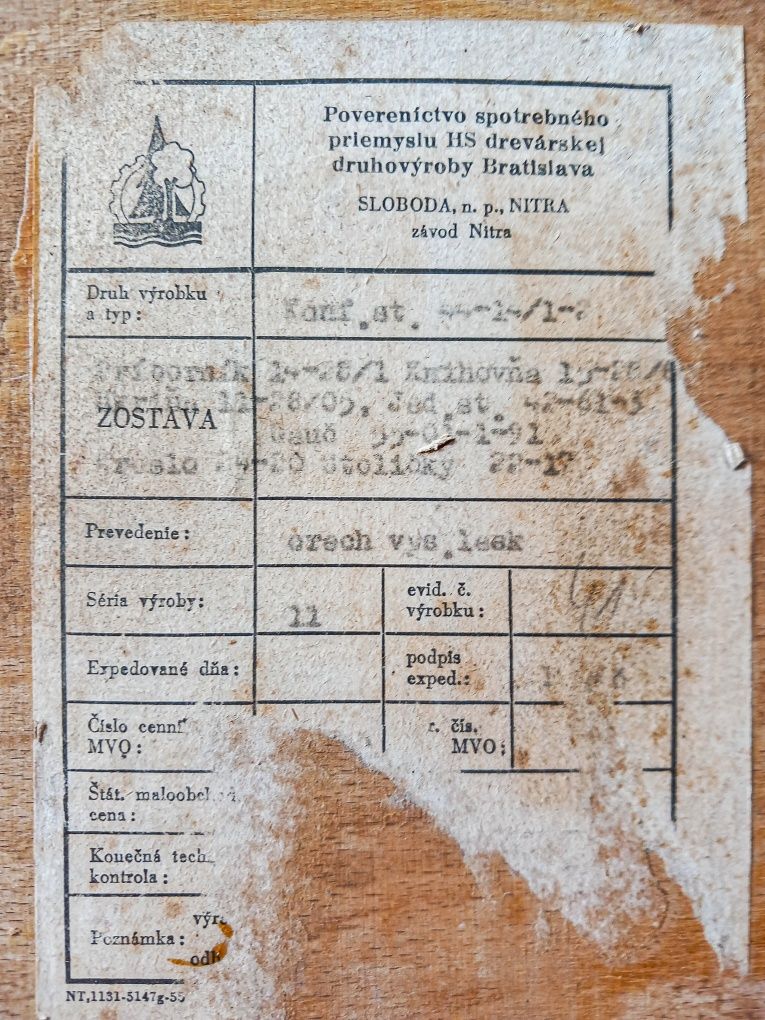 Povereníctvo spotrebného
priemyslu HS drevárskej
druhovýroby Bratislava
SLOBODA, n. p., NITRA
závod Nitra
Druh výrobku
a typ:
Komf.st. 44-14/1-
14-28/1 Knihovňa
11-28/05, Jed.st. 42-61-3
ZOSTAVA
Gauč
Stoličky 22-17
Prevedenie:
orech vys.lesk
Séria výroby:
11
evid. č.
výrobku:
Expedované dňa:
podpis
exped.:
Číslo cenní
MVO:
r. čís.
MVO:
Štát. maloobch
cena:
Konečná tech.
kontrola:
Poznámka:
výr
odb
NT,1131-5147g-55